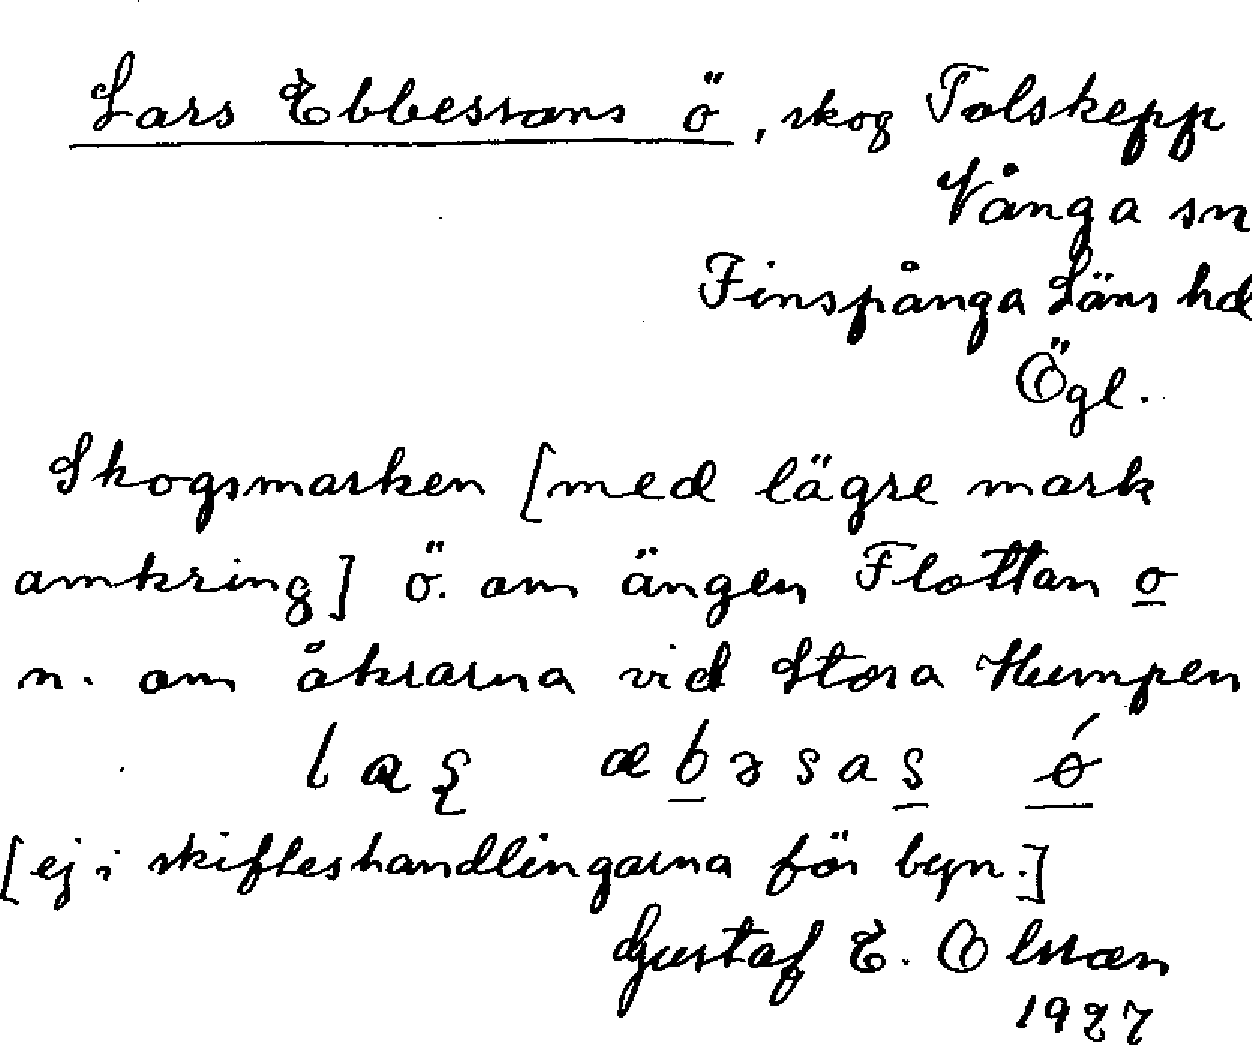 Lars Ebbessons ö, skog Tolskepp
Vånga sn
Finspånga Läns hd
Ögl.
Skogsmarken [med lägre mark
omkring] ö. om ängen Flottan o
n. om åkrarna vid Stora Humpen
[ej i skifteshandlingarna för byn.]
Gustaf E. Olsson
1927